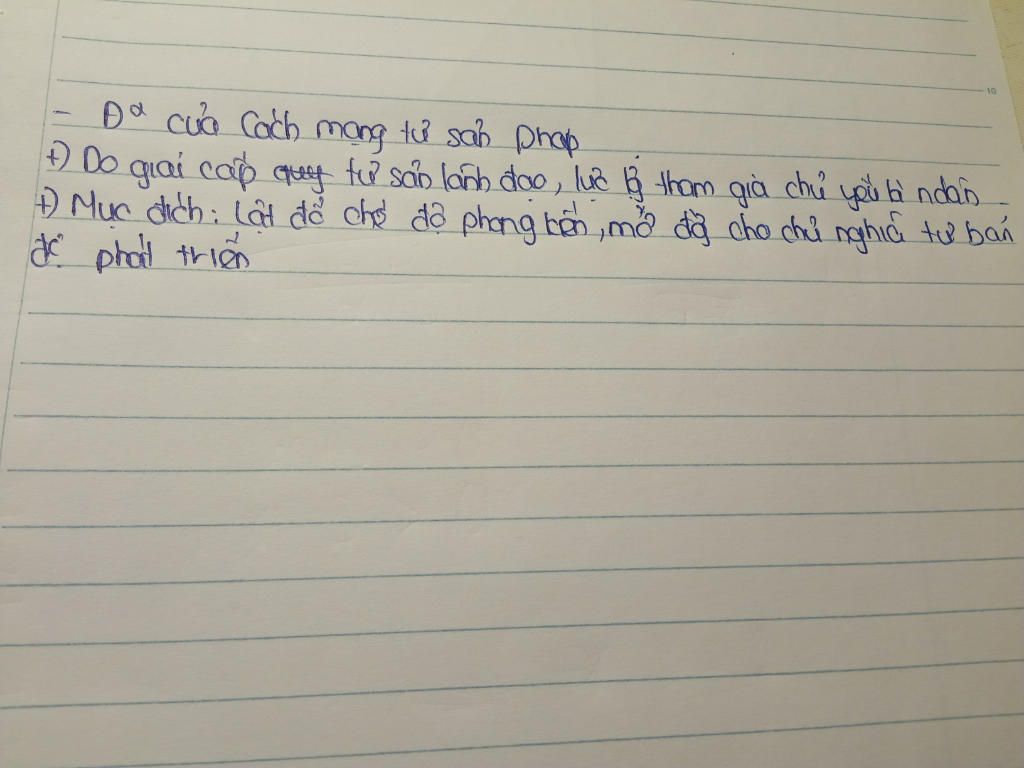 - Đ² của Cách mạng tư sản pháp
+) Do giai cấp tư sản lãnh đạo, lực lg tham gia chủ yếu là ndân
+) Mục đích: Lật đổ chế độ phong kiến, mở đg cho chủ nghĩa tư bản
để phát triển
10